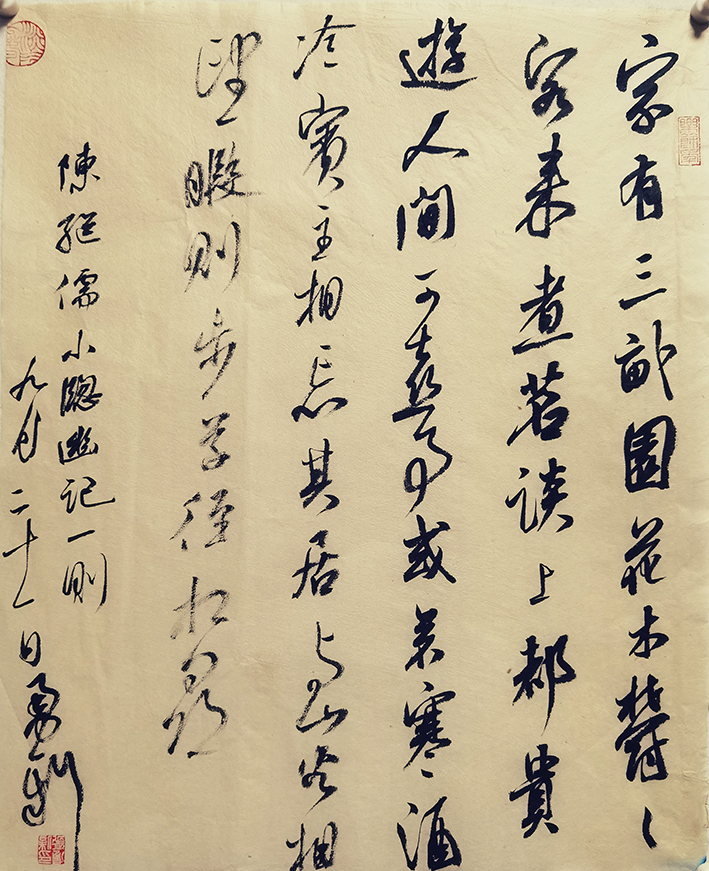 家有三畝園花木鬱〻
客来煮茗談上都貴
遊人間可喜事或茗寒酒
冷賓主相忘其居与山谷相
望暇則步草徑相尋
陳继儒小牕幽記一則
九月二十一日